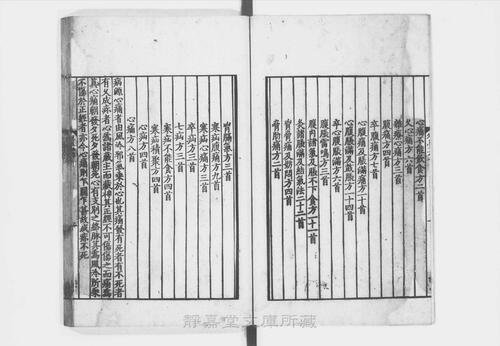 心痛不能飲食方二首
久心痛方六首
雜療心痛方三首
腹痛方四首
卒腹痛方七首
心腹痛及脹滿痛方十首
心腹脹滿及鼓脹方一十四首
卒心腹脹滿方六首
腹脹雷鳴方三首
腹内諸氣及脹不下食方一十一首
灸諸脹滿及結氣法二十二首
胷脅痛及妨悶方四首
脅肋痛方二首
胷膈氣方三首
寒疝腹痛方九首
寒疝心痛方三首
卒疝方三首
七疝方三首
寒疝不能食方四首
寒疝積聚方四首
心疝方四首
心痛方八首
病源心痛者由風冷邪氣乘於心也其痛發有死者有不死者
有久成疹者心為諸藏主而藏神其正經不可傷傷之而痛為
真心痛朝發夕死夕發朝死心有支别之絡脉其為風冷所乘
不傷於正經者亦令心痛則乍間乍甚故成疹不死
靜嘉堂文庫所藏